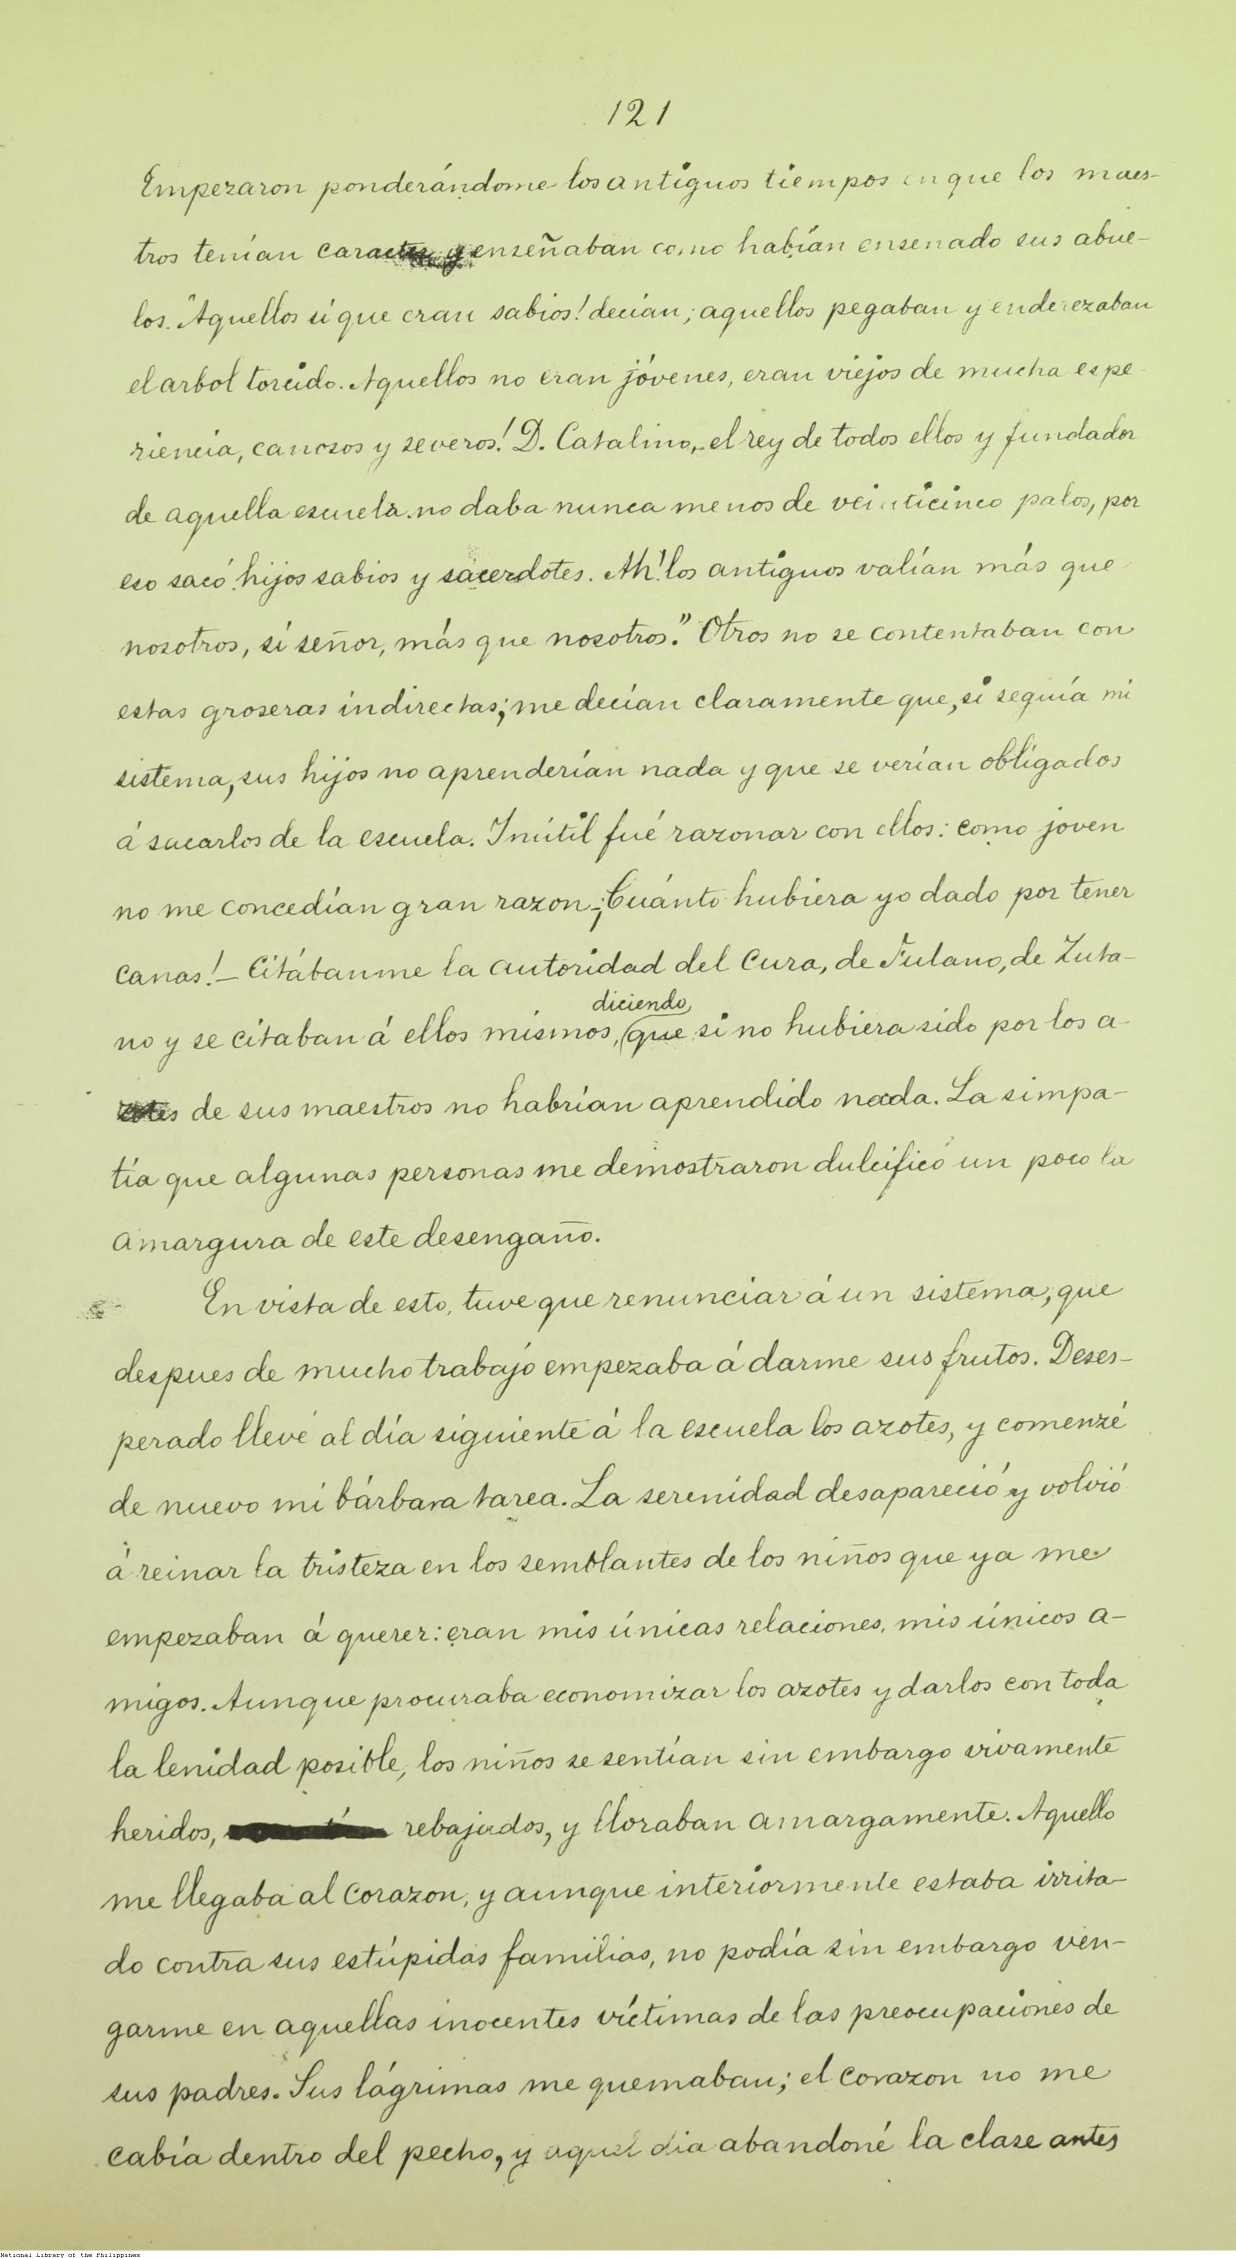 121
Empezaron ponderándome los antiguos tiempos en que los maes-
tros tenían caracter y enseñaban como habían ensenado sus abue-
los. "Aquellos sí que eran sabios! decían; aquellos pegaban y enderezaban
el arbol torcido. Aquellos no eran jóvenes, eran viejos de mucha espe-
riencia, canosos y severos! D. Catalino, el rey de todos ellos y fundador
de aquella escuela no daba nunca menos de veinticinco palos, por
eso sacó hijos sabios y sacerdotes. Ah! los antiguos valían más que
nosotros, sí señor, más que nosotros." Otros no se contentaban con
estas groseras indirectas; me decían claramente que, si seguía mi
sistema, sus hijos no aprenderían nada y que se verían obligados
á sacarlos de la escuela. Inútil fué razonar con ellos: como joven
no me concedían gran razon. ¡Cuánto hubiera yo dado por tener
canas! — Citábanme la autoridad del Cura, de Fulano, de Zuta-
no y se citaban á ellos mismos, diciendo que si no hubiera sido por los a-
zotes de sus maestros no habrían aprendido nada. La simpa-
tía que algunas personas me demostraron dulcificó un poco la
amargura de este desengaño.
En vista de esto, tuve que renunciar á un sistema, que
despues de mucho trabajo empezaba á darme sus frutos. Deses-
perado llevé al día siguiente á la escuela los azotes, y comenzé
de nuevo mi bárbara tarea. La serenidad desapareció y volvió
á reinar la tristeza en los semblantes de los niños que ya me
empezaban á querer: eran mis únicas relaciones, mis únicos a-
migos. Aunque procuraba economizar los azotes y darlos con toda
la lenidad posible, los niños se sentían sin embargo vivamente
heridos, rebajados, y lloraban amargamente. Aquello
me llegaba al corazon, y aunque interiormente estaba irrita-
do contra sus estúpidas familias, no podía sin embargo ven-
garme en aquellas inocentes víctimas de las preocupaciones de
sus padres. Sus lágrimas me quemaban; el corazon no me
cabía dentro del pecho, y aquel dia abandoné la clase antes
National Library of the Philippines